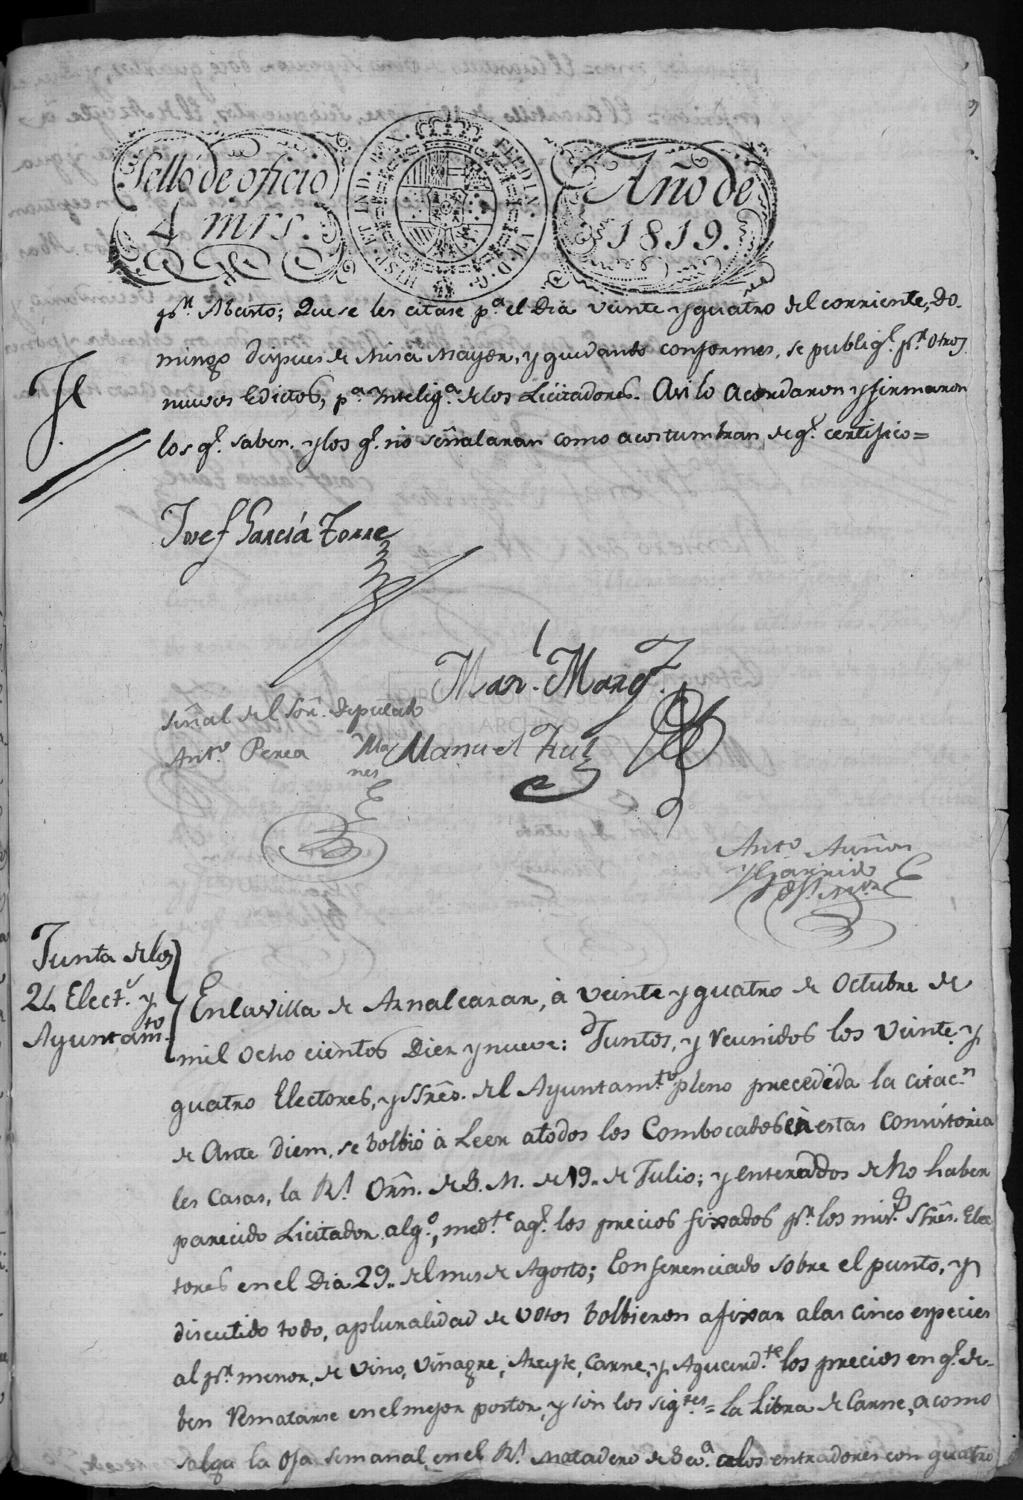 Sello de oficio
4 mrs.
HISP. ET IND. REX. FERDIN. VII. D. G.
Año de
1819.
pr. Abasto; Que se les citase pa. el Dia veinte y quatro del corriente, Do-
mingo despues de Misa Mayor, y quedando conformes, se publiqe. pr. otros
nuevos Edictos, pa. inteliga. de los Licitadores. Asi lo acordaron y firmaron
los qe. saben, y los qe. no señalaran como acostumbran de qe. certifico=
Josef Garcia Torre
Manl. Marqz.
señal del Sor. Diputado
Anto. Perea
Manuel Ruiz
Anto. Auñon
y Garrido
Junta de los
24 Elects. y
Ayuntamto.
En la villa de Aznalcazar, à veinte y quatro de Octubre de
mil ocho cientos Diez y nueve: Juntos, y reunidos los veinte y
quatro Electores, y SSres. del Ayuntamto. pleno precedida la citacn.
de Ante diem, se bolbiò à Leer a todos los Combocados en estas Consistoria
les Casas, la Rl. Orn. de S. M. de 19.. de Julio; y enterados de No haber
parecido Licitador algo., medte. aqe. los precios fixados pr. los mismos SSres. Elec
tores en el Dia 29.. del mes de Agosto; Conferenciado sobre el punto, y
discutido todo, a pluralidad de votos bolbieron a fixar a las cinco especies
al pr. menor, de vino, vinagre, Azeyte, Carne, y Aguardte. los precios en qe. de-
ben Rematarse en el mejor postor, y son los sigtes.= la Libra de Carne, a como
salga la oja semanal, en el Rl. Matadero de Seva. a los entradores con quatro